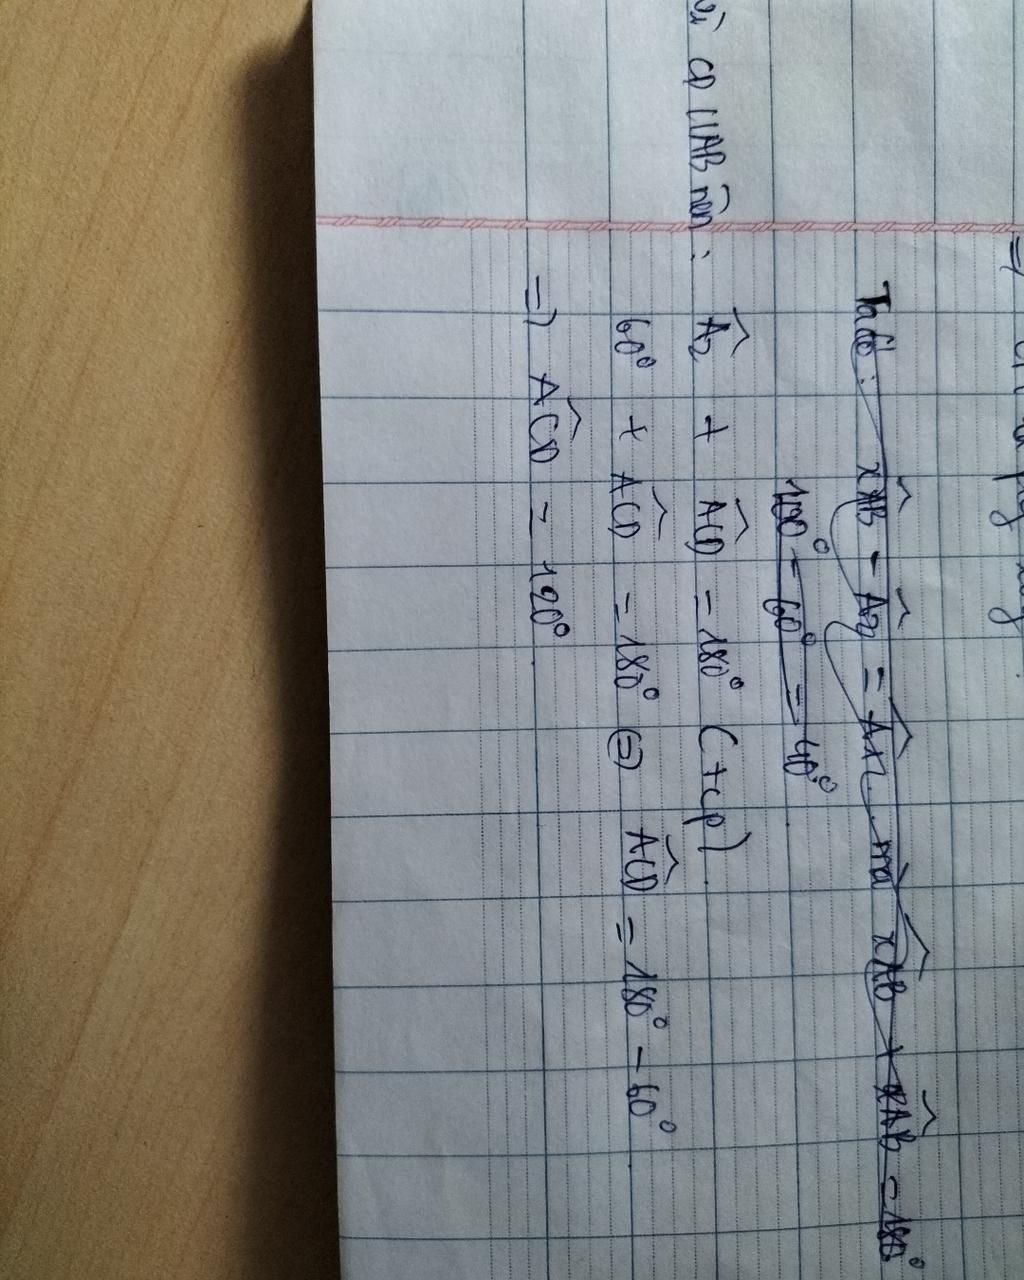 Ta có: xAB - A2 = Ax1 mà xAB + xAB = 180°
100° - 60° = 40°
CD // AB nên: Â2 + ACD = 180° (tcp)
60° + ACD = 180° ⇔ ACD = 180° - 60°
=> ACD = 120°